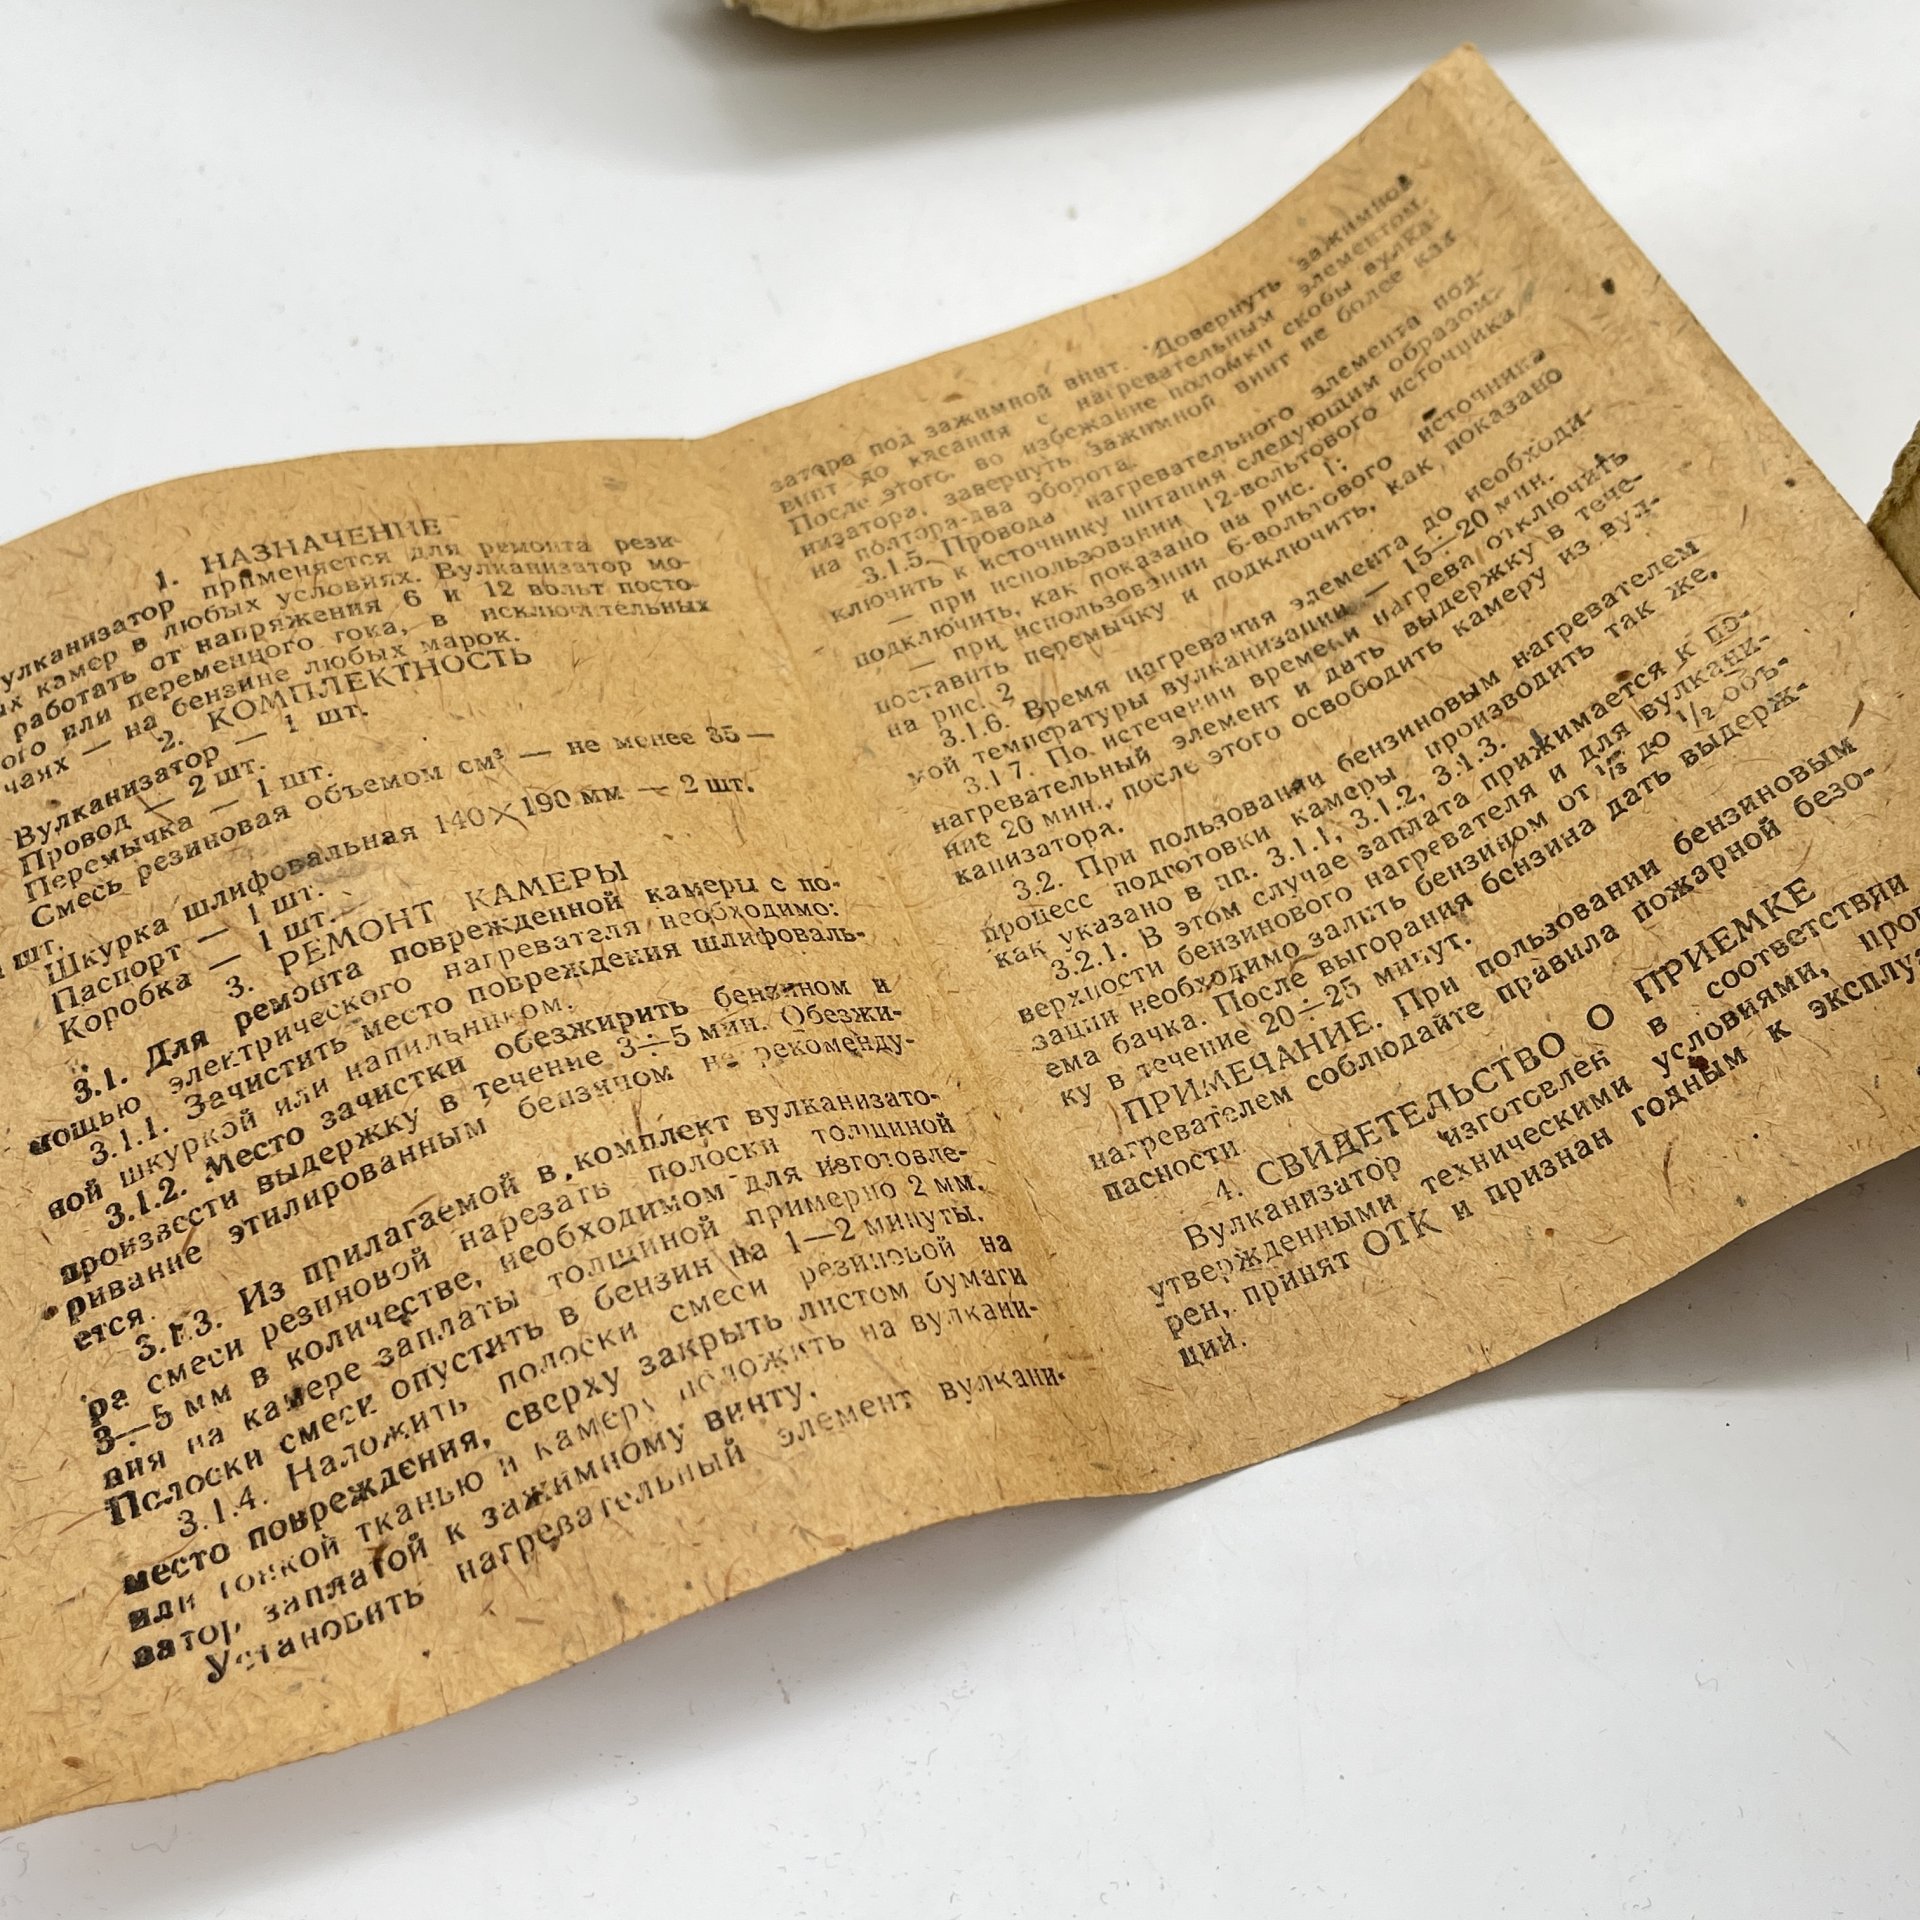 1. НАЗНАЧЕНИЕ
улканизатор применяется для ремонта рези-
ых камер в любых условиях. Вулканизатор мо-
работать от напряжения 6 и 12 вольт посто-
ого или переменного тока, в исключительных
чаях — на бензине любых марок.
2. КОМПЛЕКТНОСТЬ
Вулканизатор — 1 шт.
Провод — 2 шт.
Перемычка — 1 шт.
Смесь резиновая объемом см³ — не менее 35 —
1 шт.
Шкурка шлифовальная 140×190 мм — 2 шт.
Паспорт — 1 шт.
Коробка — 1 шт.
3. РЕМОНТ КАМЕРЫ
3.1. Для ремонта поврежденной камеры с по-
мощью электрического нагревателя необходимо:
3.1.1. Зачистить место повреждения шлифоваль-
ной шкуркой или напильником.
3.1.2. Место зачистки обезжирить бензином и
произвести выдержку в течение 3÷5 мин. Обезжи-
ривание этилированным бензином не рекоменду-
ется.
3.1.3. Из прилагаемой в комплект вулканизато-
ра смеси резиновой нарезать полоски толщиной
3÷5 мм в количестве, необходимом для изготовле-
ния на камере заплаты толщиной примерно 2 мм.
Полоски смеси опустить в бензин на 1—2 минуты.
3.1.4. Наложить полоски смеси резиновой на
место повреждения, сверху закрыть листом бумаги
или тонкой тканью и камеру положить на вулкани-
затор, заплатой к зажимному винту.
Установить нагревательный элемент вулкани-
затора под зажимной винт. Довернуть зажимной
винт до касания с нагревательным элементом.
После этого, во избежание поломки скобы вулка-
низатора, завернуть зажимной винт не более как
на полтора-два оборота.
3.1.5. Провода нагревательного элемента под-
ключить к источнику питания следующим образом:
— при использовании 12-вольтового источника
подключить, как показано на рис. 1;
— при использовании 6-вольтового источника
поставить перемычку и подключить, как показано
на рис. 2
3.1.6. Время нагревания элемента до необходи-
мой температуры вулканизации — 15÷20 мин.
3.1.7. По истечении времени нагрева отключить
нагревательный элемент и дать выдержку в тече-
ние 20 мин., после этого освободить камеру из вул-
канизатора.
3.2. При пользовании бензиновым нагревателем
процесс подготовки камеры производить так же,
как указано в пп. 3.1.1, 3.1.2, 3.1.3.
3.2.1. В этом случае заплата прижимается к по-
верхности бензинового нагревателя и для вулкани-
зации необходимо залить бензином от 1/3 до 1/2 объ-
ема бачка. После выгорания бензина дать выдерж-
ку в течение 20÷25 минут.
ПРИМЕЧАНИЕ. При пользовании бензиновым
нагревателем соблюдайте правила пожарной безо-
пасности
4. СВИДЕТЕЛЬСТВО О ПРИЕМКЕ
Вулканизатор изготовлен в соответствии
утвержденными техническими условиями, пров
рен, принят ОТК и признан годным к эксплуа
ции.